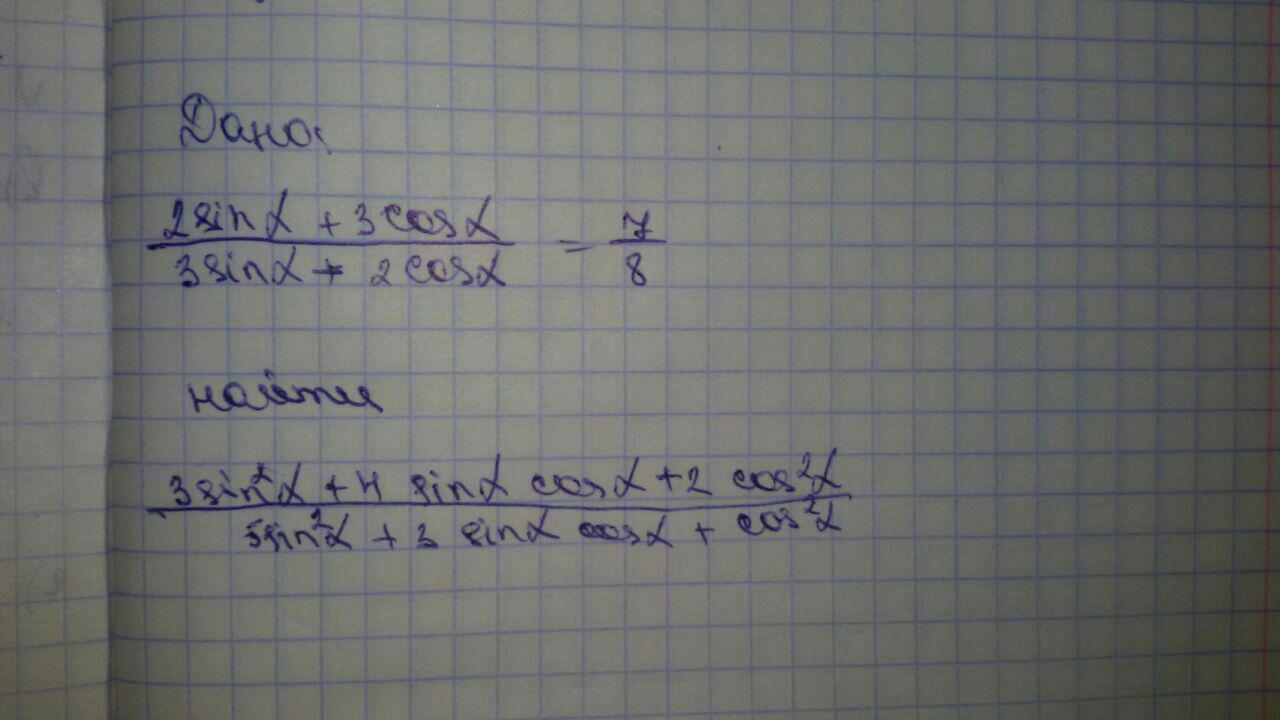 Дано:
2sinα + 3cosα
3sinα + 2cosα
= 7
8
найти
3sin²α + 4 sinα cosα + 2 cos²α
5sin²α + 3 sinα cosα + cos²α